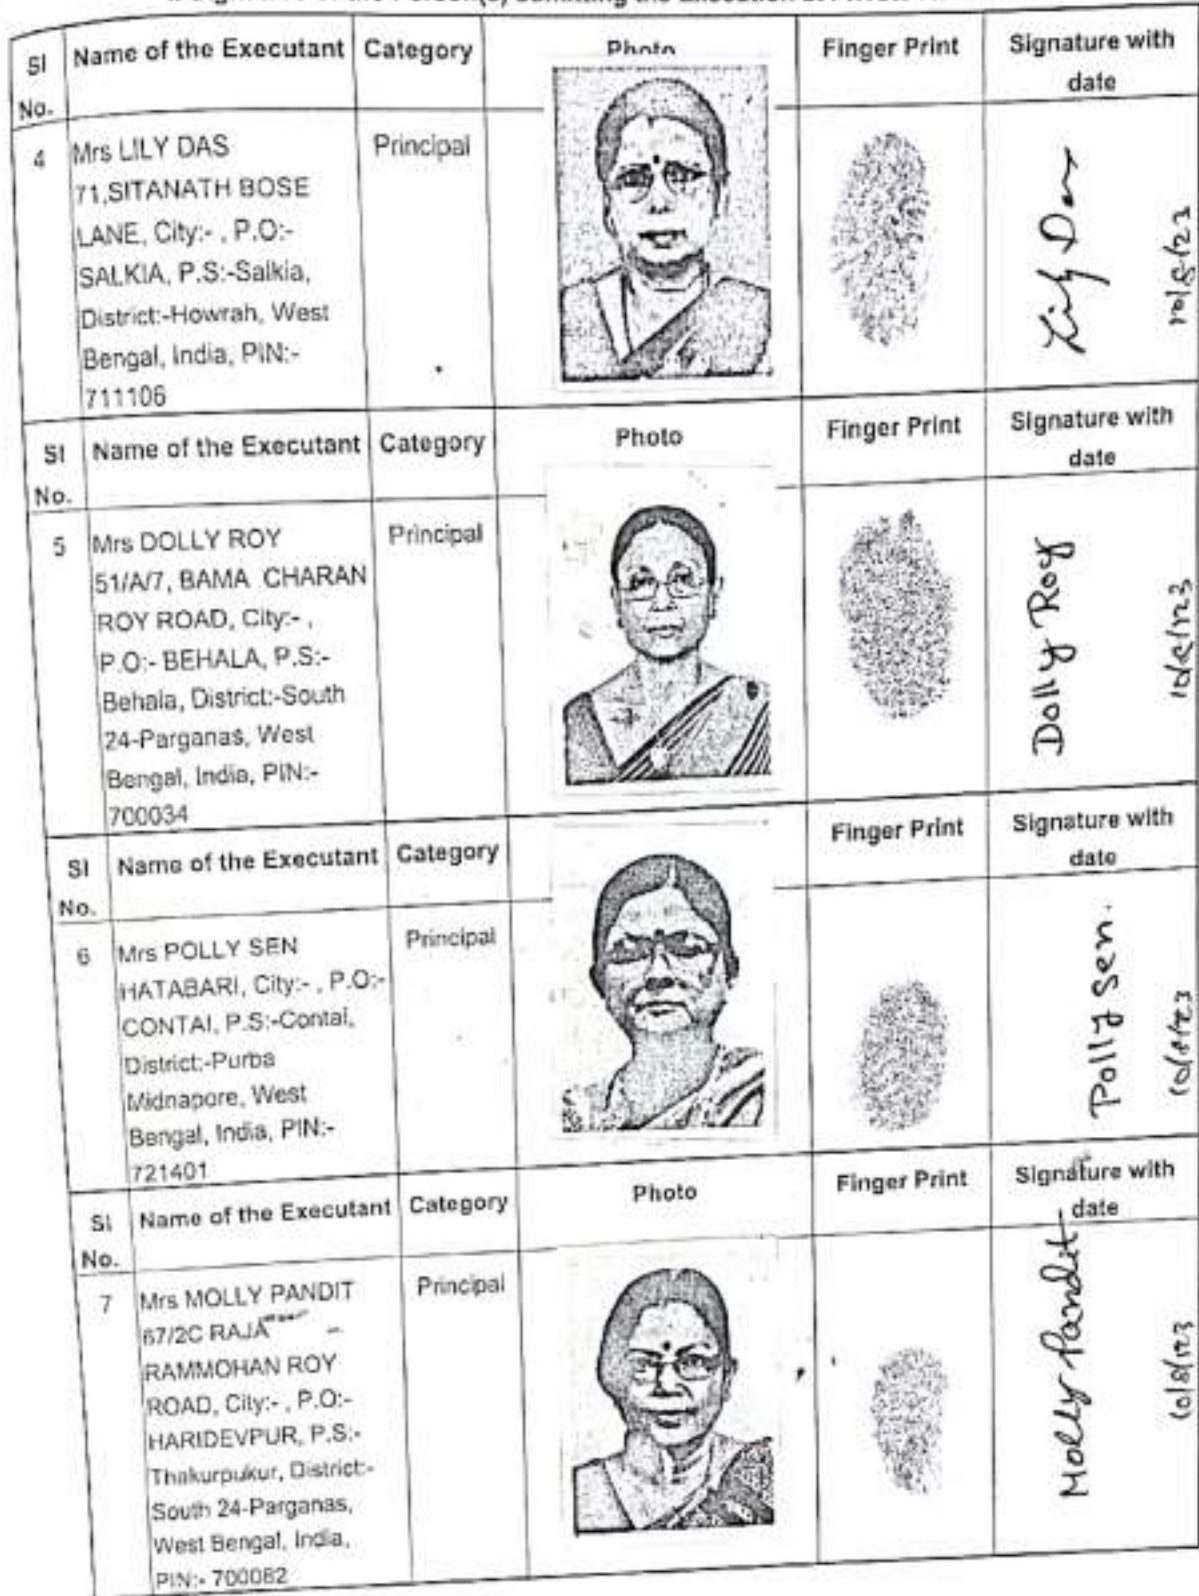 Signature of the Person(s) admitting the Execution at Private
Sl No. Name of the Executant Category Photo Finger Print Signature with date
4 Mrs LILY DAS Principal
71,SITANATH BOSE
LANE, City:- , P.O:-
SALKIA, P.S:-Salkia,
District:-Howrah, West
Bengal, India, PIN:-
711106
Lily Das
10/8/23
Sl No. Name of the Executant Category Photo Finger Print Signature with date
5 Mrs DOLLY ROY Principal
51/A/7, BAMA CHARAN
ROY ROAD, City:- ,
P.O:- BEHALA, P.S:-
Behala, District:-South
24-Parganas, West
Bengal, India, PIN:-
700034
Dolly Roy
10/8/23
Sl No. Name of the Executant Category Finger Print Signature with date
6 Mrs POLLY SEN Principal
HATABARI, City:- , P.O:-
CONTAI, P.S:-Contai,
District:-Purba
Midnapore, West
Bengal, India, PIN:-
721401
Polly Sen.
10/8/23
Sl No. Name of the Executant Category Photo Finger Print Signature with date
7 Mrs MOLLY PANDIT Principal
67/2C RAJA
RAMMOHAN ROY
ROAD, City:- , P.O:-
HARIDEVPUR, P.S:-
Thakurpukur, District:-
South 24-Parganas,
West Bengal, India,
PIN:- 700082
Molly Pandit
10/8/23